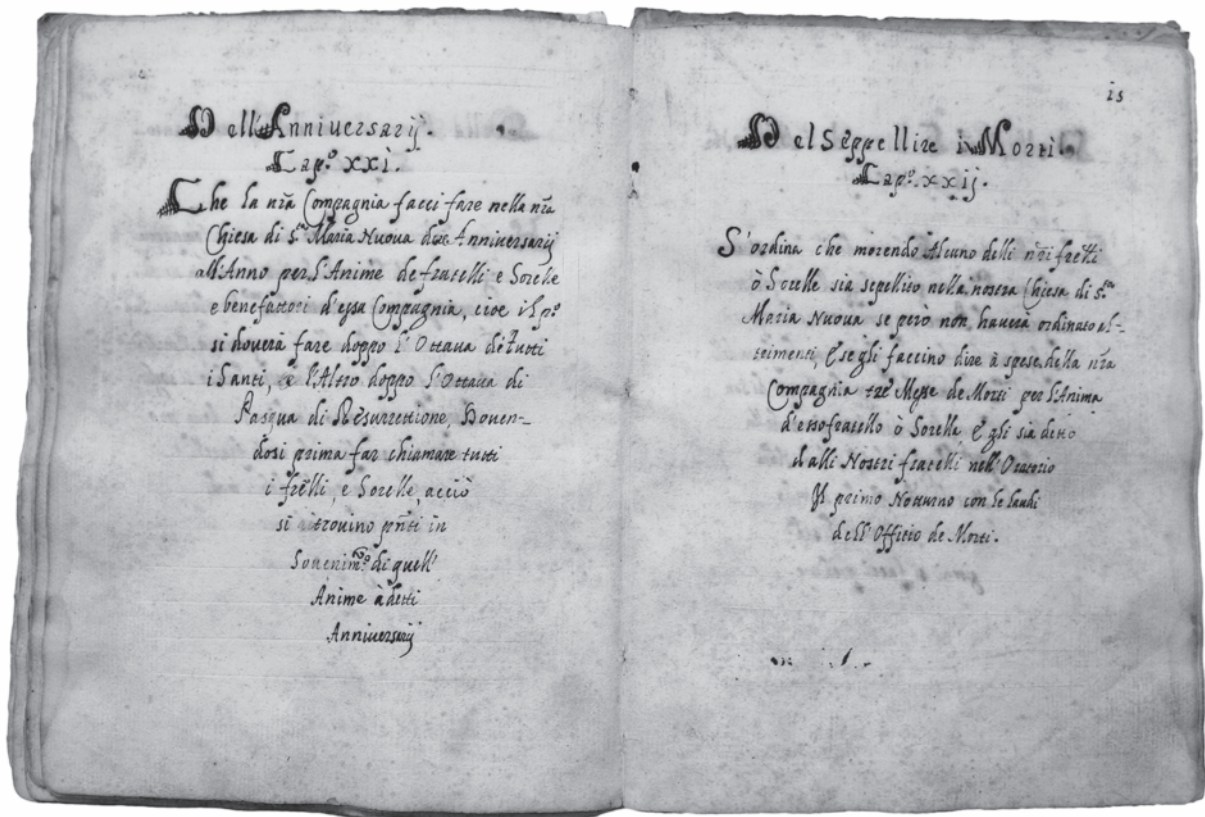 Dell'Anniuersarij.
Cap.º XXI.
Che la nrã Compagnia facci fare nella nrã
Chiesa di S.ta Maria Nuoua due Anniuersarij
all'Anno per l'Anime de fratelli e Sorelle
e benefattori d'essa Compagnia, cioe il p.º
si douerà fare doppo l'Ottaua de tutti
i Santi, e l'Altro doppo l'Ottaua di
Pasqua di Resurrettione, Douen-
dosi prima far chiamare tutti
i frelli, e Sorelle, acciò
si ritrouino pñti in
Souenim.to di quell'
Anime à detti
Anniuersarij
15
Del Seppellire i Morti.
Cap.º XXij.
S'ordina che morendo Alcuno delli nrĩ frelli
ò Sorelle sia sepellito nella nostra Chiesa di S.ta
Maria Nuoua se però non hauerà ordinato al-
trimenti, E se gli faccino dire à spese della nrã
Compagnia tre Messe de Morti per l'Anima
d'esso fratello ò Sorella E gli sia detto
dalli Nostri fratelli nell'Oratorio
Il primo Notturno con le laudi
dell'Offitio de Morti.